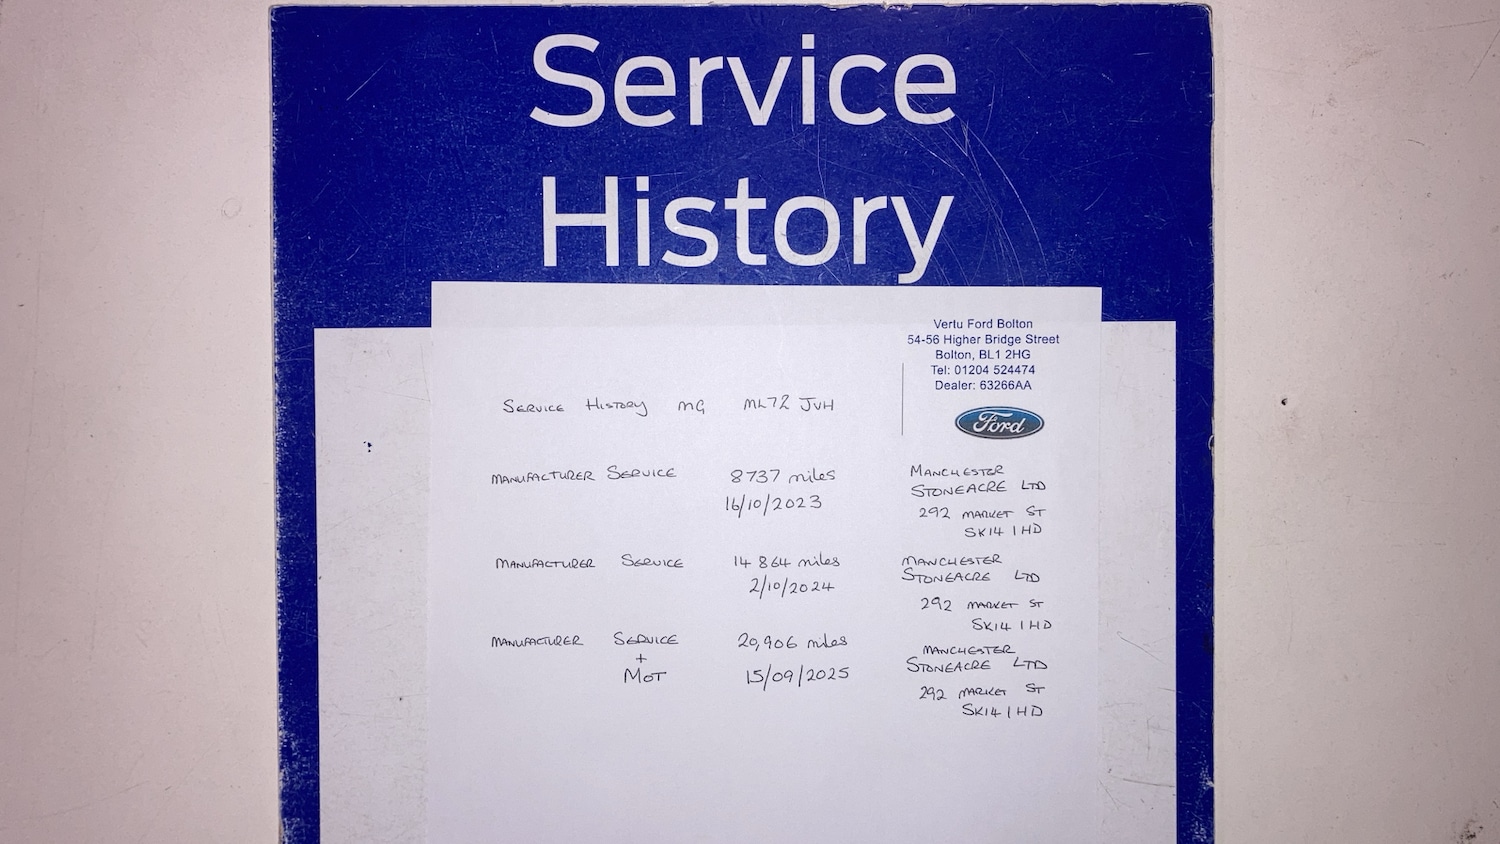 Service
History
Vertu Ford Bolton
54-56 Higher Bridge Street
Bolton, BL1 2HG
Tel: 01204 524474
Dealer: 63266AA
Ford
SERVICE HISTORY MG ML72 JVH
MANUFACTURER SERVICE 8737 miles MANCHESTER
STONEACRE LTD
16/10/2023
292 MARKET ST
SK14 1HD
MANUFACTURER SERVICE 14 864 miles MANCHESTER
STONEACRE LTD
2/10/2024
292 MARKET ST
SK14 1HD
MANUFACTURER SERVICE 20,906 miles MANCHESTER
+ STONEACRE LTD
MOT 15/09/2025
292 MARKET ST
SK14 1HD